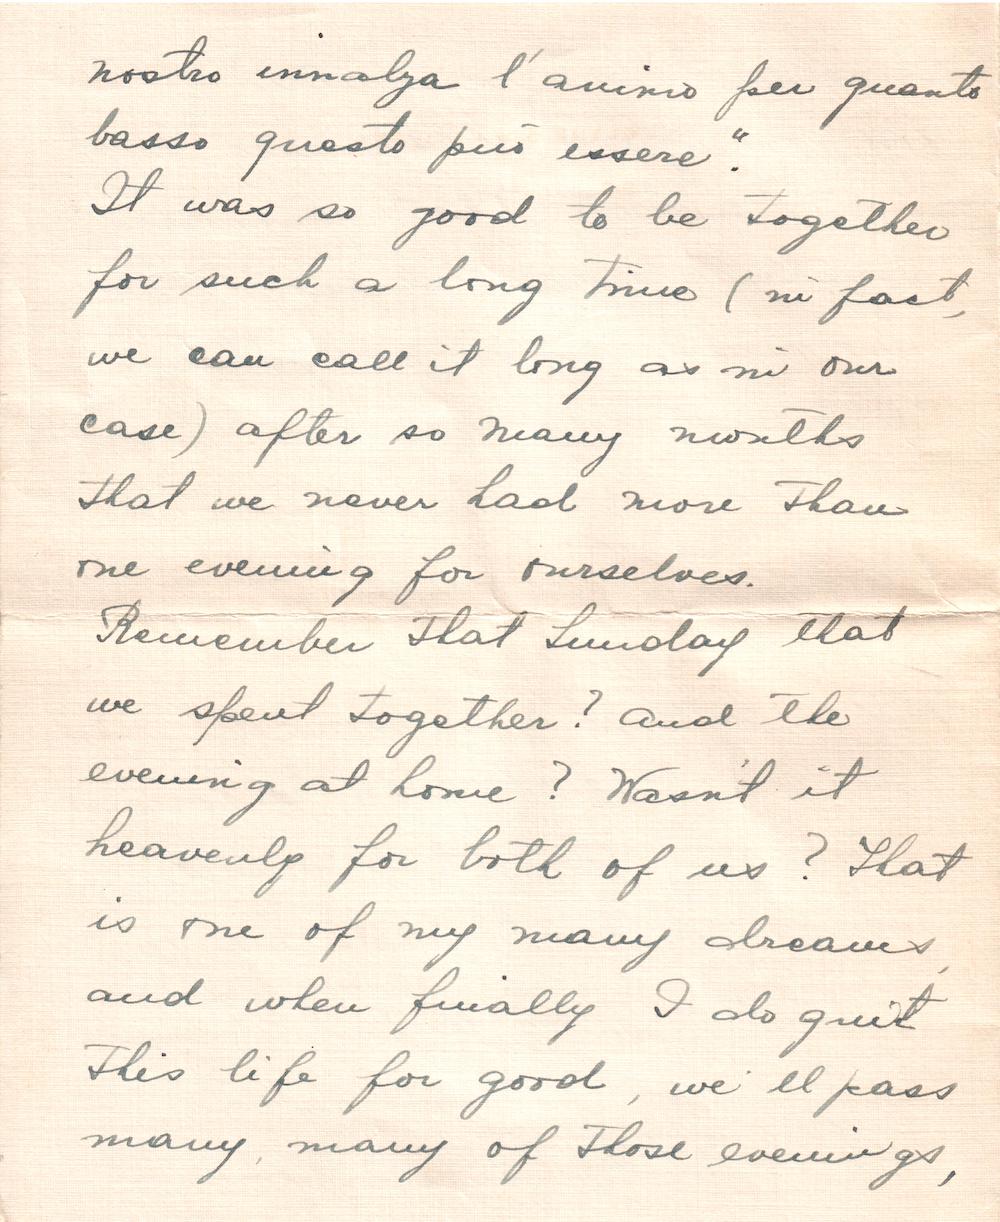 nostro innalza l'animo per quanto
basso questo può essere".
It was so good to be together
for such a long time (in fact,
we can call it long as in our
case) after so many months
that we never had more than
one evening for ourselves.
Remember that Sunday that
we spent together? and the
evening at home? Wasn't it
heavenly for both of us? That
is one of my many dreams,
and when finally I do quit
this life for good, we'll pass
many, many of those evenings,